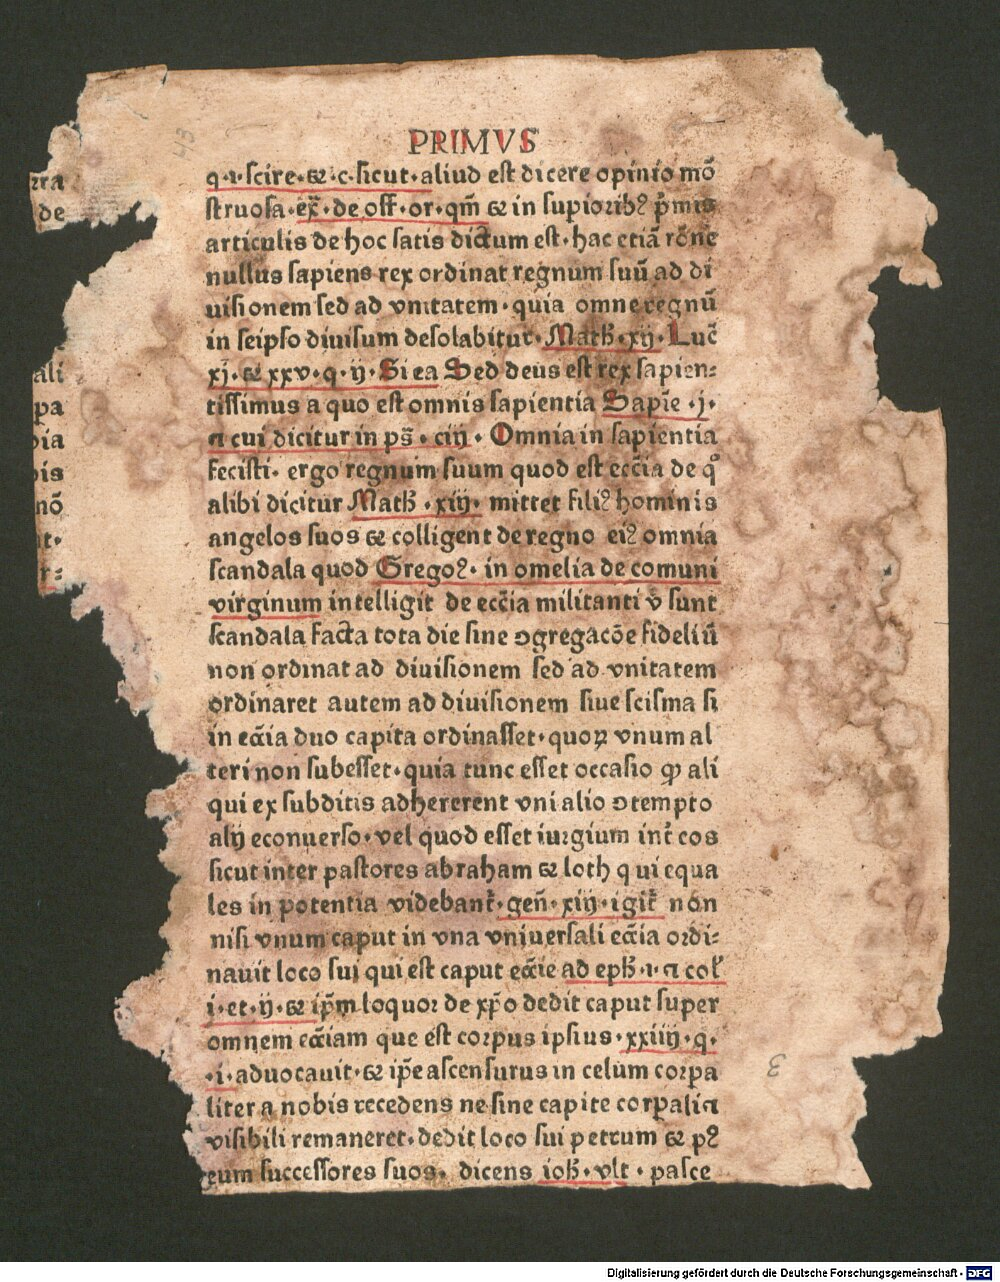 PRIMVS
q·i·scire·⁊·c·sicut·aliud est dicere opinio mō
struosa·ex̄·de off·or·qm̄ ⁊ in supioribꝰ p̄mis
articulis de hoc satis dictum est·hac etiā rōne
nullus sapiens rex ordinat regnum suū ad di
uisionem sed ad vnitatem·quia omne regnū
in seipso diuisum desolabitur·Math̄·xij·Luc̄
xj·⁊ xxv·q·ij·Si ea Sed deus est rex sapien:
tissimus a quo est omnis sapientia Sapīe·j·
a cui dicitur in ps̄·ciij·Omnia in sapientia
fecisti·ergo regnum suum quod est ecc̄ia de qͦ
alibi dicitur Math̄·xiij·mittet filiꝰ hominis
angelos suos ⁊ colligent de regno eiꝰ omnia
scandala quod Gregoꝰ·in omelia de comuni
virginum intelligit de ecc̄ia militanti v̄ sunt
scandala facta tota die sine ꝯgregacōe fideliū
non ordinat ad diuisionem sed ad vnitatem
ordinaret autem ad diuisionem siue scisma si
in ecc̄ia duo capita ordinasset·quoꝝ vnum al
teri non subesset·quia tunc esset occasio ꝙ ali
qui ex subditis adhererent vni alio ꝯtempto
alij econuerso·vel quod esset iurgium int̄ eos
sicut inter pastores abraham ⁊ loth qui equa
les in potentia videbant̄·gen̄·xiij·igit̄ non
nisi vnum caput in vna vniuersali ecc̄ia ordi:
nauit loco sui qui est caput ecc̄ie ad eph̄·i·a col̄
i·et·ij·⁊ ip̄m loquor de xp̄o dedit caput super
omnem ecc̄iam que est corpus ipsius·xxiiij·q·
·i·aduocauit·⁊ ip̄e ascensurus in celum corpa
liter a nobis recedens ne sine capite corpali a
visibili remaneret·dedit loco sui petrum ⁊ pꝰ
eum successores suos·dicens ioh̄·vlt·pasce
rra
de
ali
pa
bis
nō
Digitalisierung gefördert durch die Deutsche Forschungsgemeinschaft - DFG